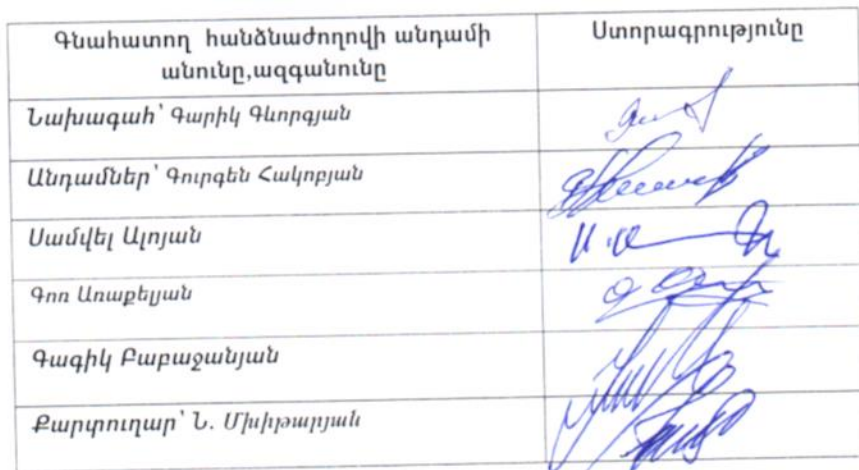 Գնահատող հանձնաժողովի անդամի
անունը,ազգանունը
Ստորագրությունը
Նախագահ՝ Գարիկ Գևորգյան
Անդամներ՝ Գուրգեն Հակոբյան
Սամվել Ալոյան
Գոռ Առաքելյան
Գագիկ Բաբաջանյան
Քարտուղար՝ Ն. Մխիթարյան